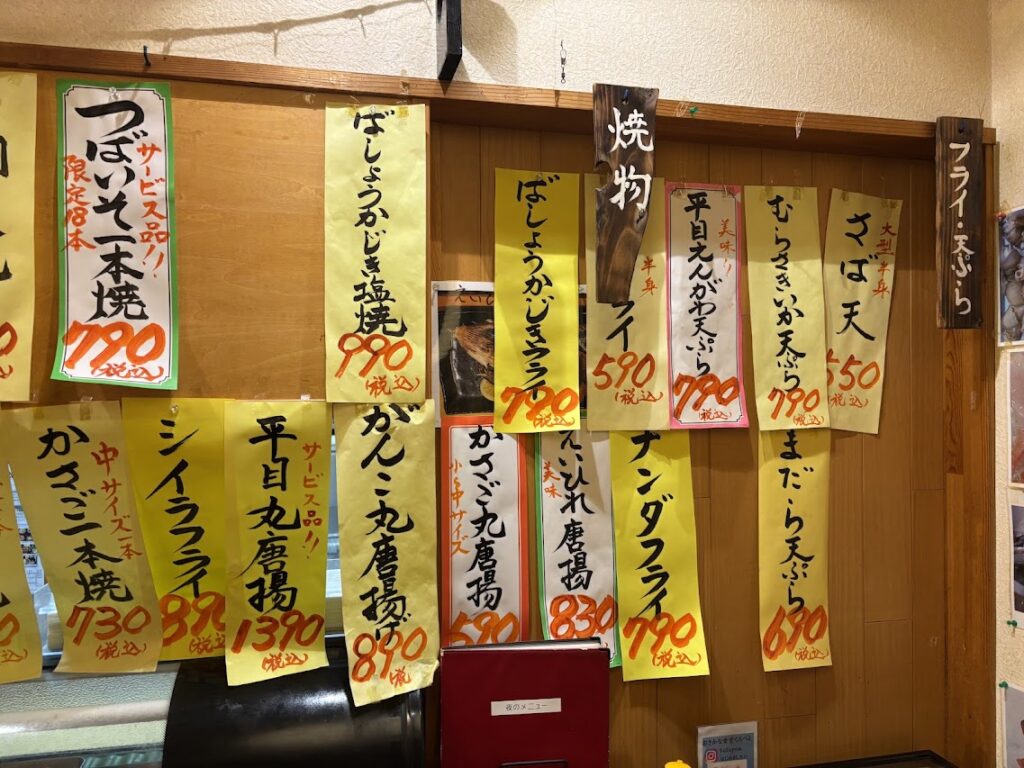 つばいそ一本焼
サービス品!!
限定18本
790
(税込)
ばしょうかじき塩焼
990
(税込)
ばしょうかじきフライ
790
(税込)
焼物
半身
フライ
590
(税込)
平目えんがわ天ぷら
美味!!
790
(税込)
むらさきいか天ぷら
790
(税込)
さば天
大型半身
550
(税込)
フライ・天ぷら
かさご一本焼
中サイズ一本
730
(税込)
シイラフライ
890
(税込)
平目丸唐揚
サービス品!!
1390
(税込)
がんこ丸唐揚げ
890
(税
かさご丸唐揚
小〜中サイズ
590
えいひれ唐揚
美味
830
ナンダフライ
790
(税込)
まだら天ぷら
690
(税込)
夜のメニュー